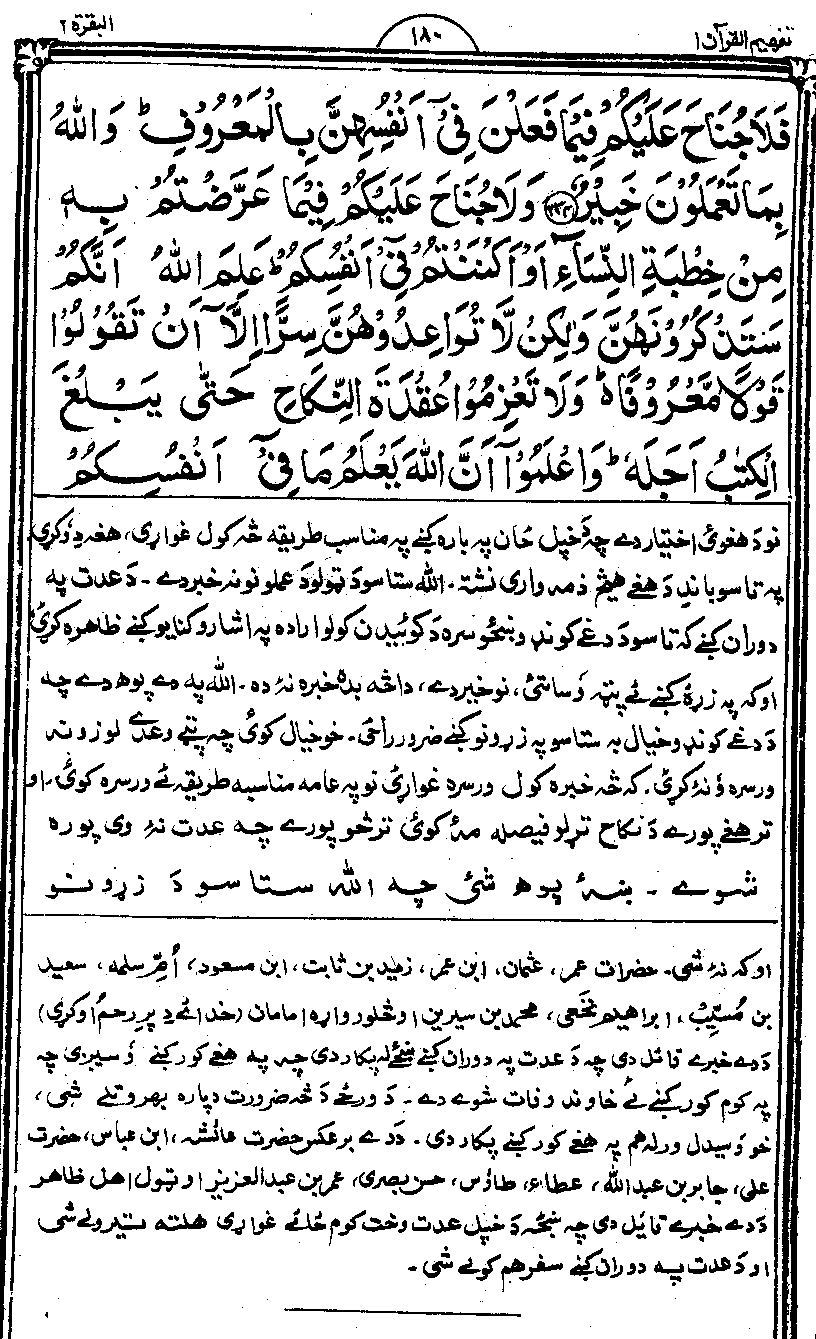 تفهيم القرآن ١
١٨٠
البقرة ٢
فَلَا جُنَاحَ عَلَيْكُمْ فِيْمَا فَعَلْنَ فِيْٓ اَنْفُسِهِنَّ بِالْمَعْرُوْفِ ؕ وَاللّٰهُ
بِمَا تَعْمَلُوْنَ خَبِيْرٌ ﴿٢٣٤﴾ وَلَا جُنَاحَ عَلَيْكُمْ فِيْمَا عَرَّضْتُمْ بِهٖ
مِنْ خِطْبَةِ النِّسَآءِ اَوْ اَكْنَنْتُمْ فِيْٓ اَنْفُسِكُمْ ؕ عَلِمَ اللّٰهُ اَنَّكُمْ
سَتَذْكُرُوْنَهُنَّ وَلٰكِنْ لَّا تُوَاعِدُوْهُنَّ سِرًّا اِلَّآ اَنْ تَقُوْلُوْا
قَوْلًا مَّعْرُوْفًا ؕ۬ وَلَا تَعْزِمُوْا عُقْدَةَ النِّكَاحِ حَتّٰى يَبْلُغَ
الْكِتٰبُ اَجَلَهٗ ؕ وَاعْلَمُوْٓا اَنَّ اللّٰهَ يَعْلَمُ مَا فِيْٓ اَنْفُسِكُمْ
نو د هغوئ اختيار دے چه د خپل ځان په باره کښے په مناسب طريقه څه کول غواړى، هغه دِ وکړى
په تاسو باندِ د هغے هيڅ ذمه وارى نشته ـ الله ستاسو د ټولو د عملونو نه خبر دے ـ د عدت په
دوران کښے که تاسو د دغے کونډو ښځو سره د کوئيدن کولو اراده په اشارو کنايو کښے ظاهره کړئ
او که په زړۀ کښے ئے پټه وساتئ، نو خير دے، دا څه بده خبره نۀ ده ـ الله په دے پوهـ دے چه
د دغے کونډو خيال به ستاسو په زړونو کښے ضرور راځى ـ خو خيال کوئ چه پټے وعدے لوزونه
ورسره ونۀ کړئ ـ که څه خبره کول ورسره غواړئ نو په عامه مناسبه طريقه ئے ورسره کوئ ـ او
تر هغے پورے د نکاح تړلو فيصله مۀ کوئ تر څو پورے چه عدت نۀ وى پوره
شوے ـ ښۀ پوهـ شئ چه الله ستاسو د زړونو
او که نۀ شى ـ حضرات عمر، عثمان، ابن عمر، زيد بن ثابت، ابن مسعود، اُمِّ سلمه، سعيد
بن مُسيِّبْ، ابراهيم نخعى، محمد بن سيرين او څلور واړه امامان (خدائے دِ پرے رحم اوکړى)
د دے خبرے قائل دى چه د عدت په دوران کښے ښځے له پکار دى چه په هغے کور کښے وسيږى چه
په کوم کور کښے ئے خاوند وفات شوے دے ـ د ورځے د څه ضرورت دپاره بهر وتلے شى،
خو اوسيدل ورله هم په هغے کور کښے پکار دى ـ د دے برعکس حضرت عائشه، ابن عباس، حضرت
على، جابر بن عبدالله، عطاء، طاؤس، حسن بصرى، عمر بن عبدالعزيز او ټول اهل ظاهر
د دے خبرے قائل دى چه ښځه د خپل عدت وخت کوم ځائے غواړى هلته تيرولے شى
او د عدت په دوران کښے سفر هم کولے شى ـ